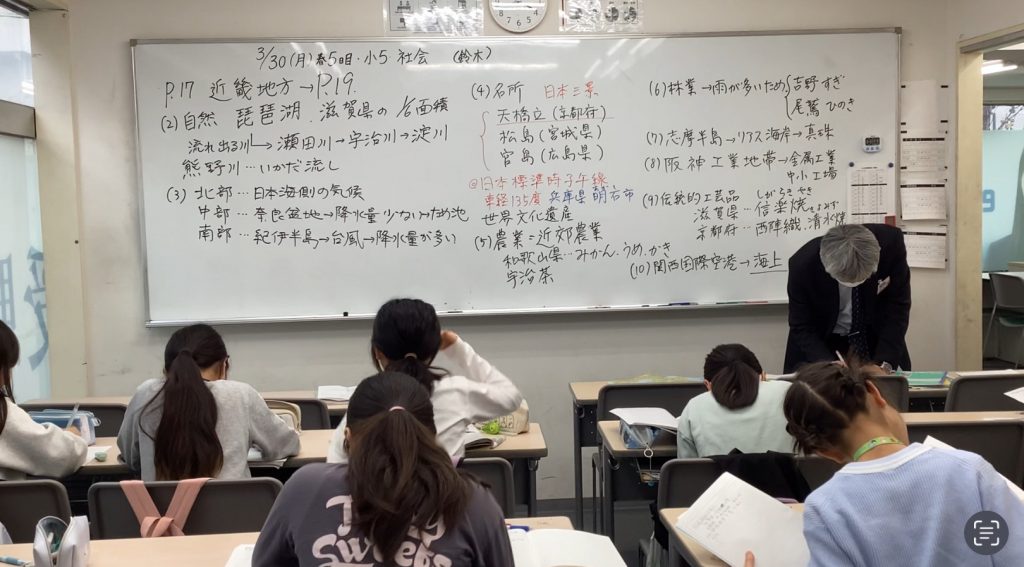 3/30(月)春5日目・小5 社会 (鈴木)
P.17 近畿地方→P.19.
(2)自然 琵琶湖.滋賀県の1/6面積
流れ出る川→瀬田川→宇治川→淀川
熊野川…いかだ流し
(3)北部…日本海側の気候
中部…奈良盆地→降水量少ない→ため池
南部…紀伊半島→台風→降水量が多い
(4)名所 日本三景
天橋立(京都府)
松島(宮城県)
宮島(広島県)
@日本標準時子午線
東経135度 兵庫県明石市
世界文化遺産
(5)農業=近郊農業
和歌山県…みかん.うめ.かき
宇治茶
(6)林業→雨が多いため 吉野すぎ
尾鷲ひのき
(7)志摩半島→リアス海岸→真珠
(8)阪神工業地帯→金属工業
中小工場
(9)伝統的工芸品 しがらきやき
滋賀県…信楽焼
京都府…西陣織.清水焼
(10)関西国際空港→海上